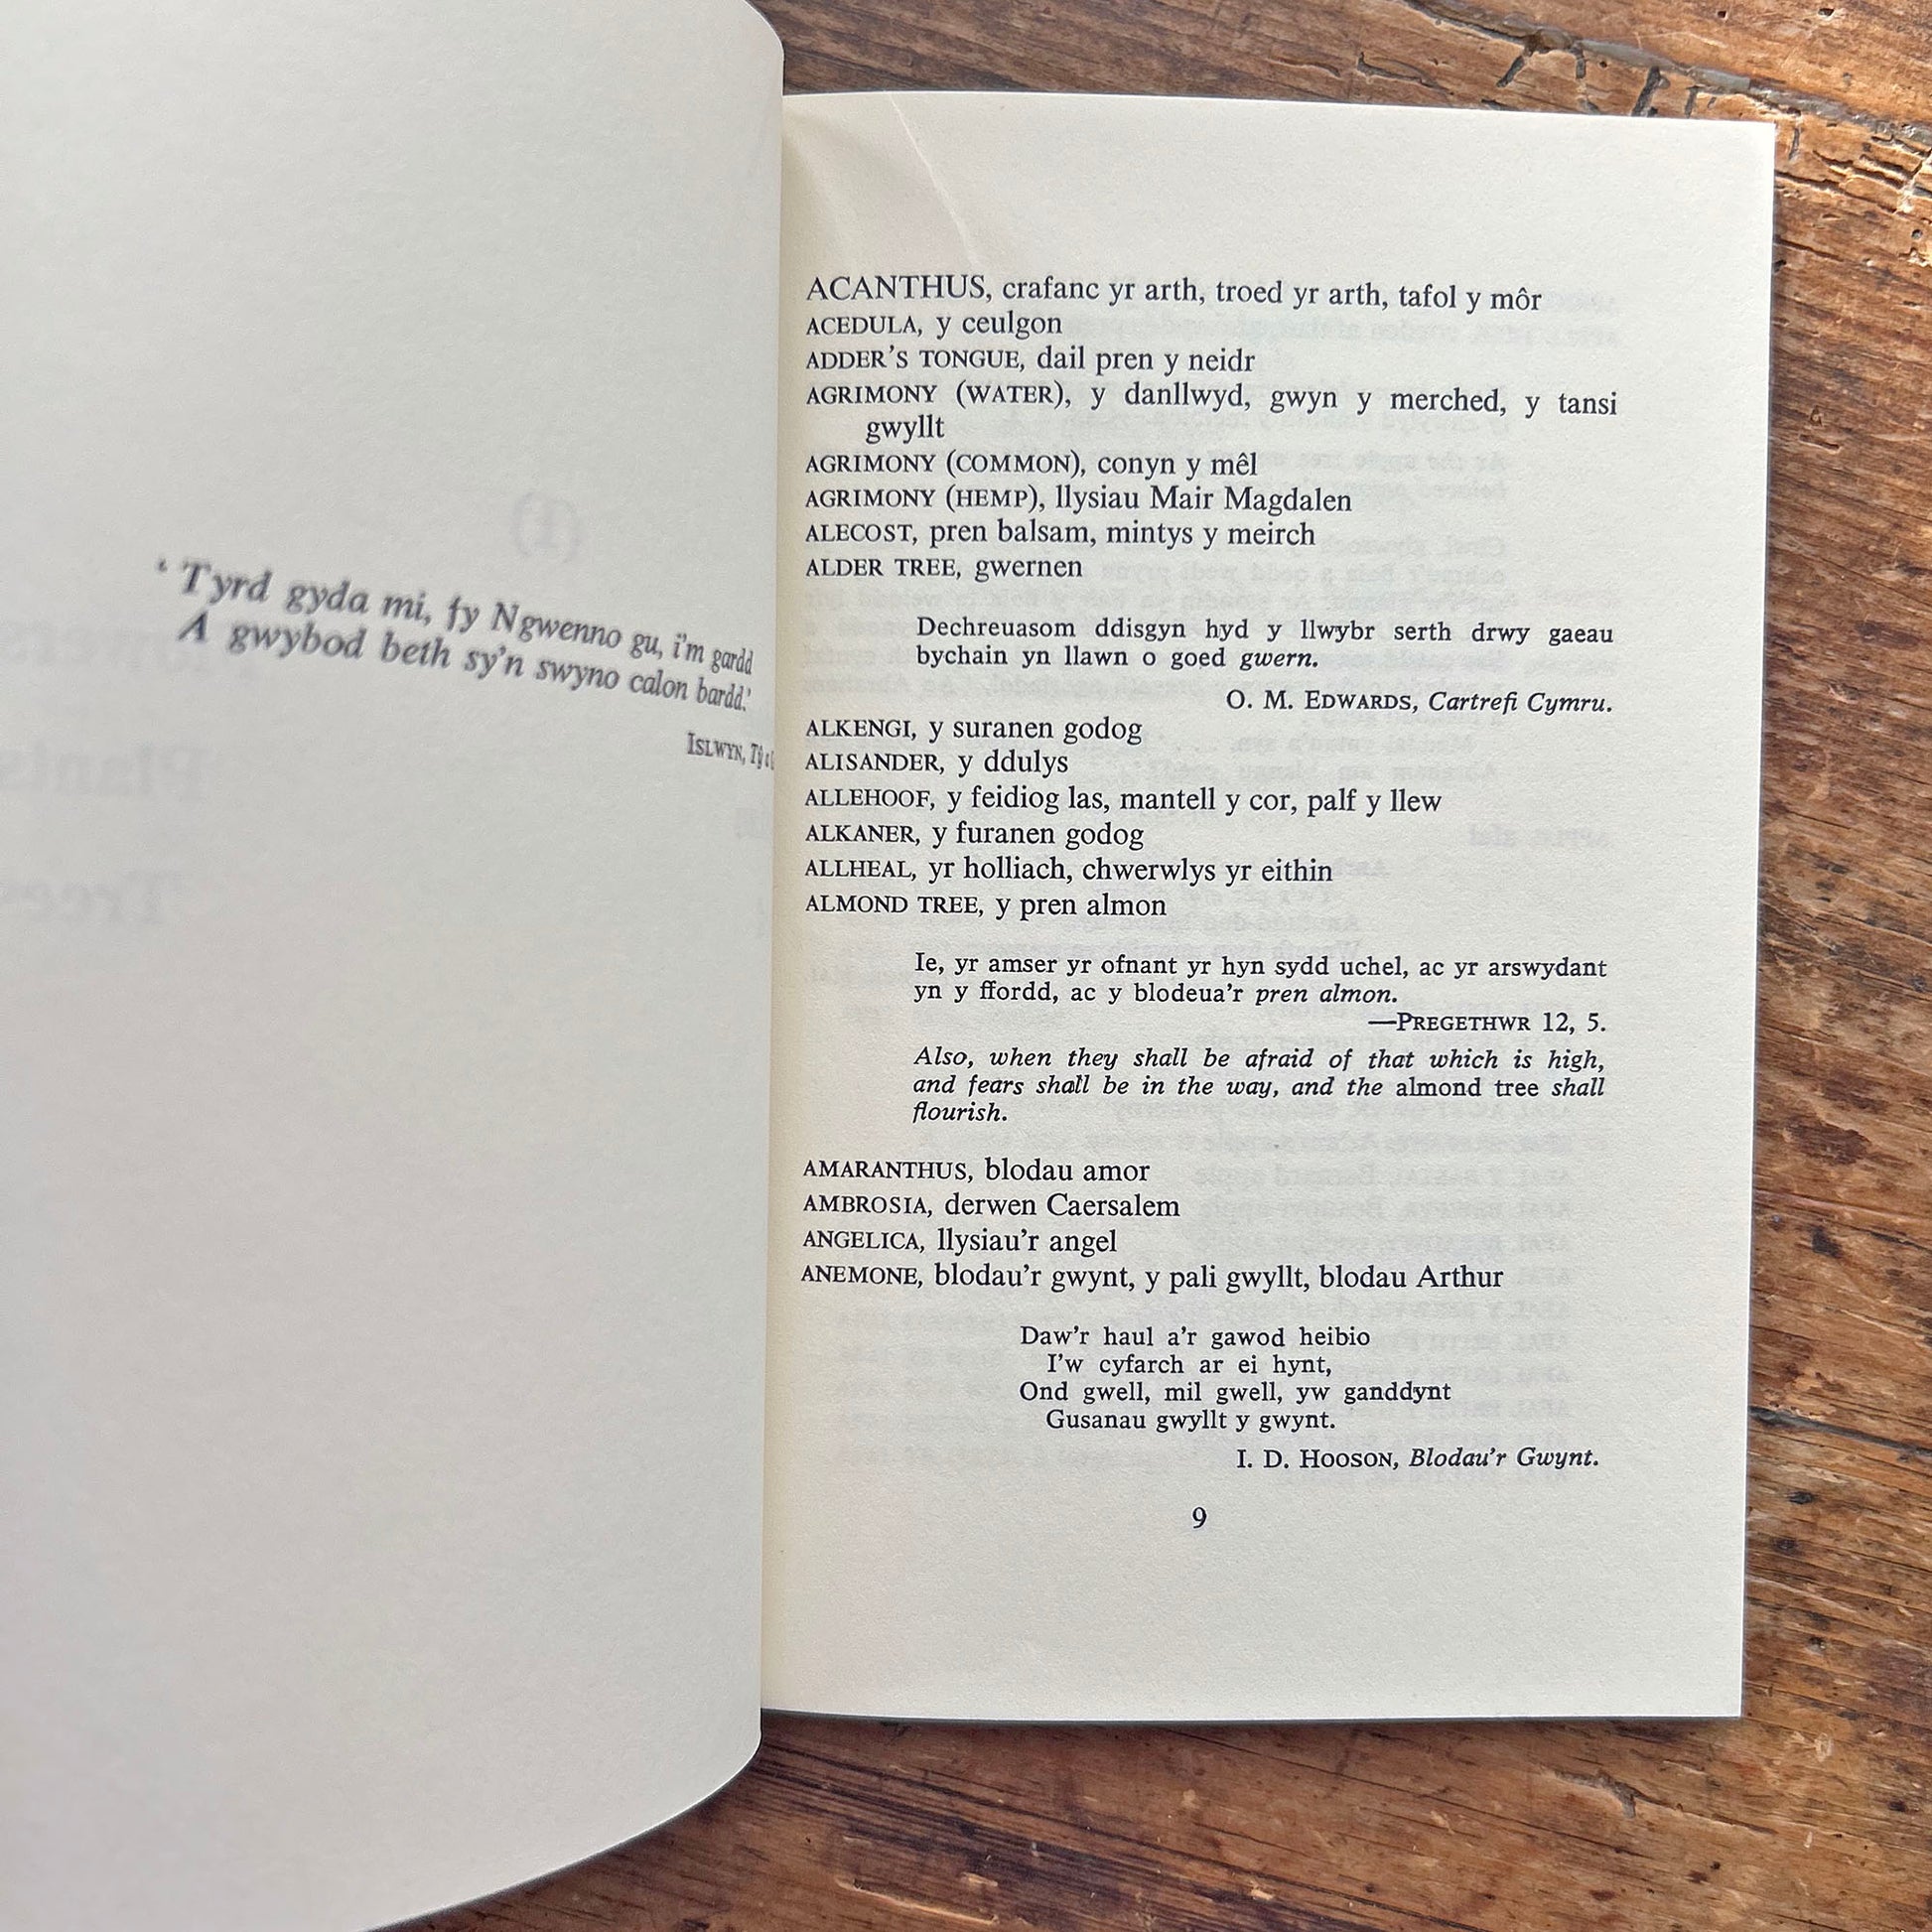 ‘ Tyrd gyda mi, fy Ngwenno gu, i'm gardd
A gwybod beth sy'n swyno calon bardd.’
ISLWYN,
ACANTHUS, crafanc yr arth, troed yr arth, tafol y môr
ACEDULA, y ceulgon
ADDER'S TONGUE, dail pren y neidr
AGRIMONY (WATER), y danllwyd, gwyn y merched, y tansi
gwyllt
AGRIMONY (COMMON), conyn y mêl
AGRIMONY (HEMP), llysiau Mair Magdalen
ALECOST, pren balsam, mintys y meirch
ALDER TREE, gwernen
Dechreuasom ddisgyn hyd y llwybr serth drwy gaeau
bychain yn llawn o goed gwern.
O. M. EDWARDS, Cartrefi Cymru.
ALKENGI, y suranen godog
ALISANDER, y ddulys
ALLEHOOF, y feidiog las, mantell y cor, palf y llew
ALKANER, y furanen godog
ALLHEAL, yr holliach, chwerwlys yr eithin
ALMOND TREE, y pren almon
Ie, yr amser yr ofnant yr hyn sydd uchel, ac yr arswydant
yn y ffordd, ac y blodeua'r pren almon.
—PREGETHWR 12, 5.
Also, when they shall be afraid of that which is high,
and fears shall be in the way, and the almond tree shall
flourish.
AMARANTHUS, blodau amor
AMBROSIA, derwen Caersalem
ANGELICA, llysiau'r angel
ANEMONE, blodau'r gwynt, y pali gwyllt, blodau Arthur
Daw'r haul a'r gawod heibio
I'w cyfarch ar ei hynt,
Ond gwell, mil gwell, yw ganddynt
Gusanau gwyllt y gwynt.
I. D. HOOSON, Blodau'r Gwynt.
9